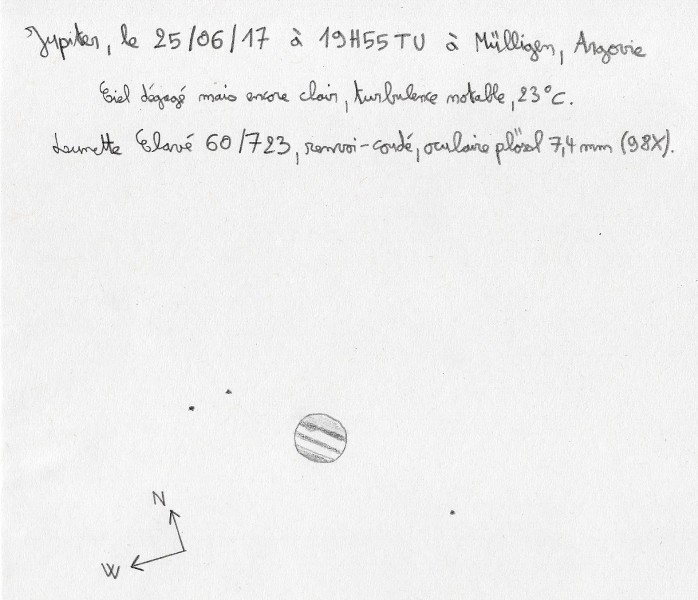 Jupiter, le 25/06/17 à 19H55TU à Mülligen, Argovie
Ciel dégagé mais encore clair, turbulence notable, 23°C.
Lunette Clavé 60/723, renvoi-coudé, oculaire plössl 7,4 mm (98X).
N
W